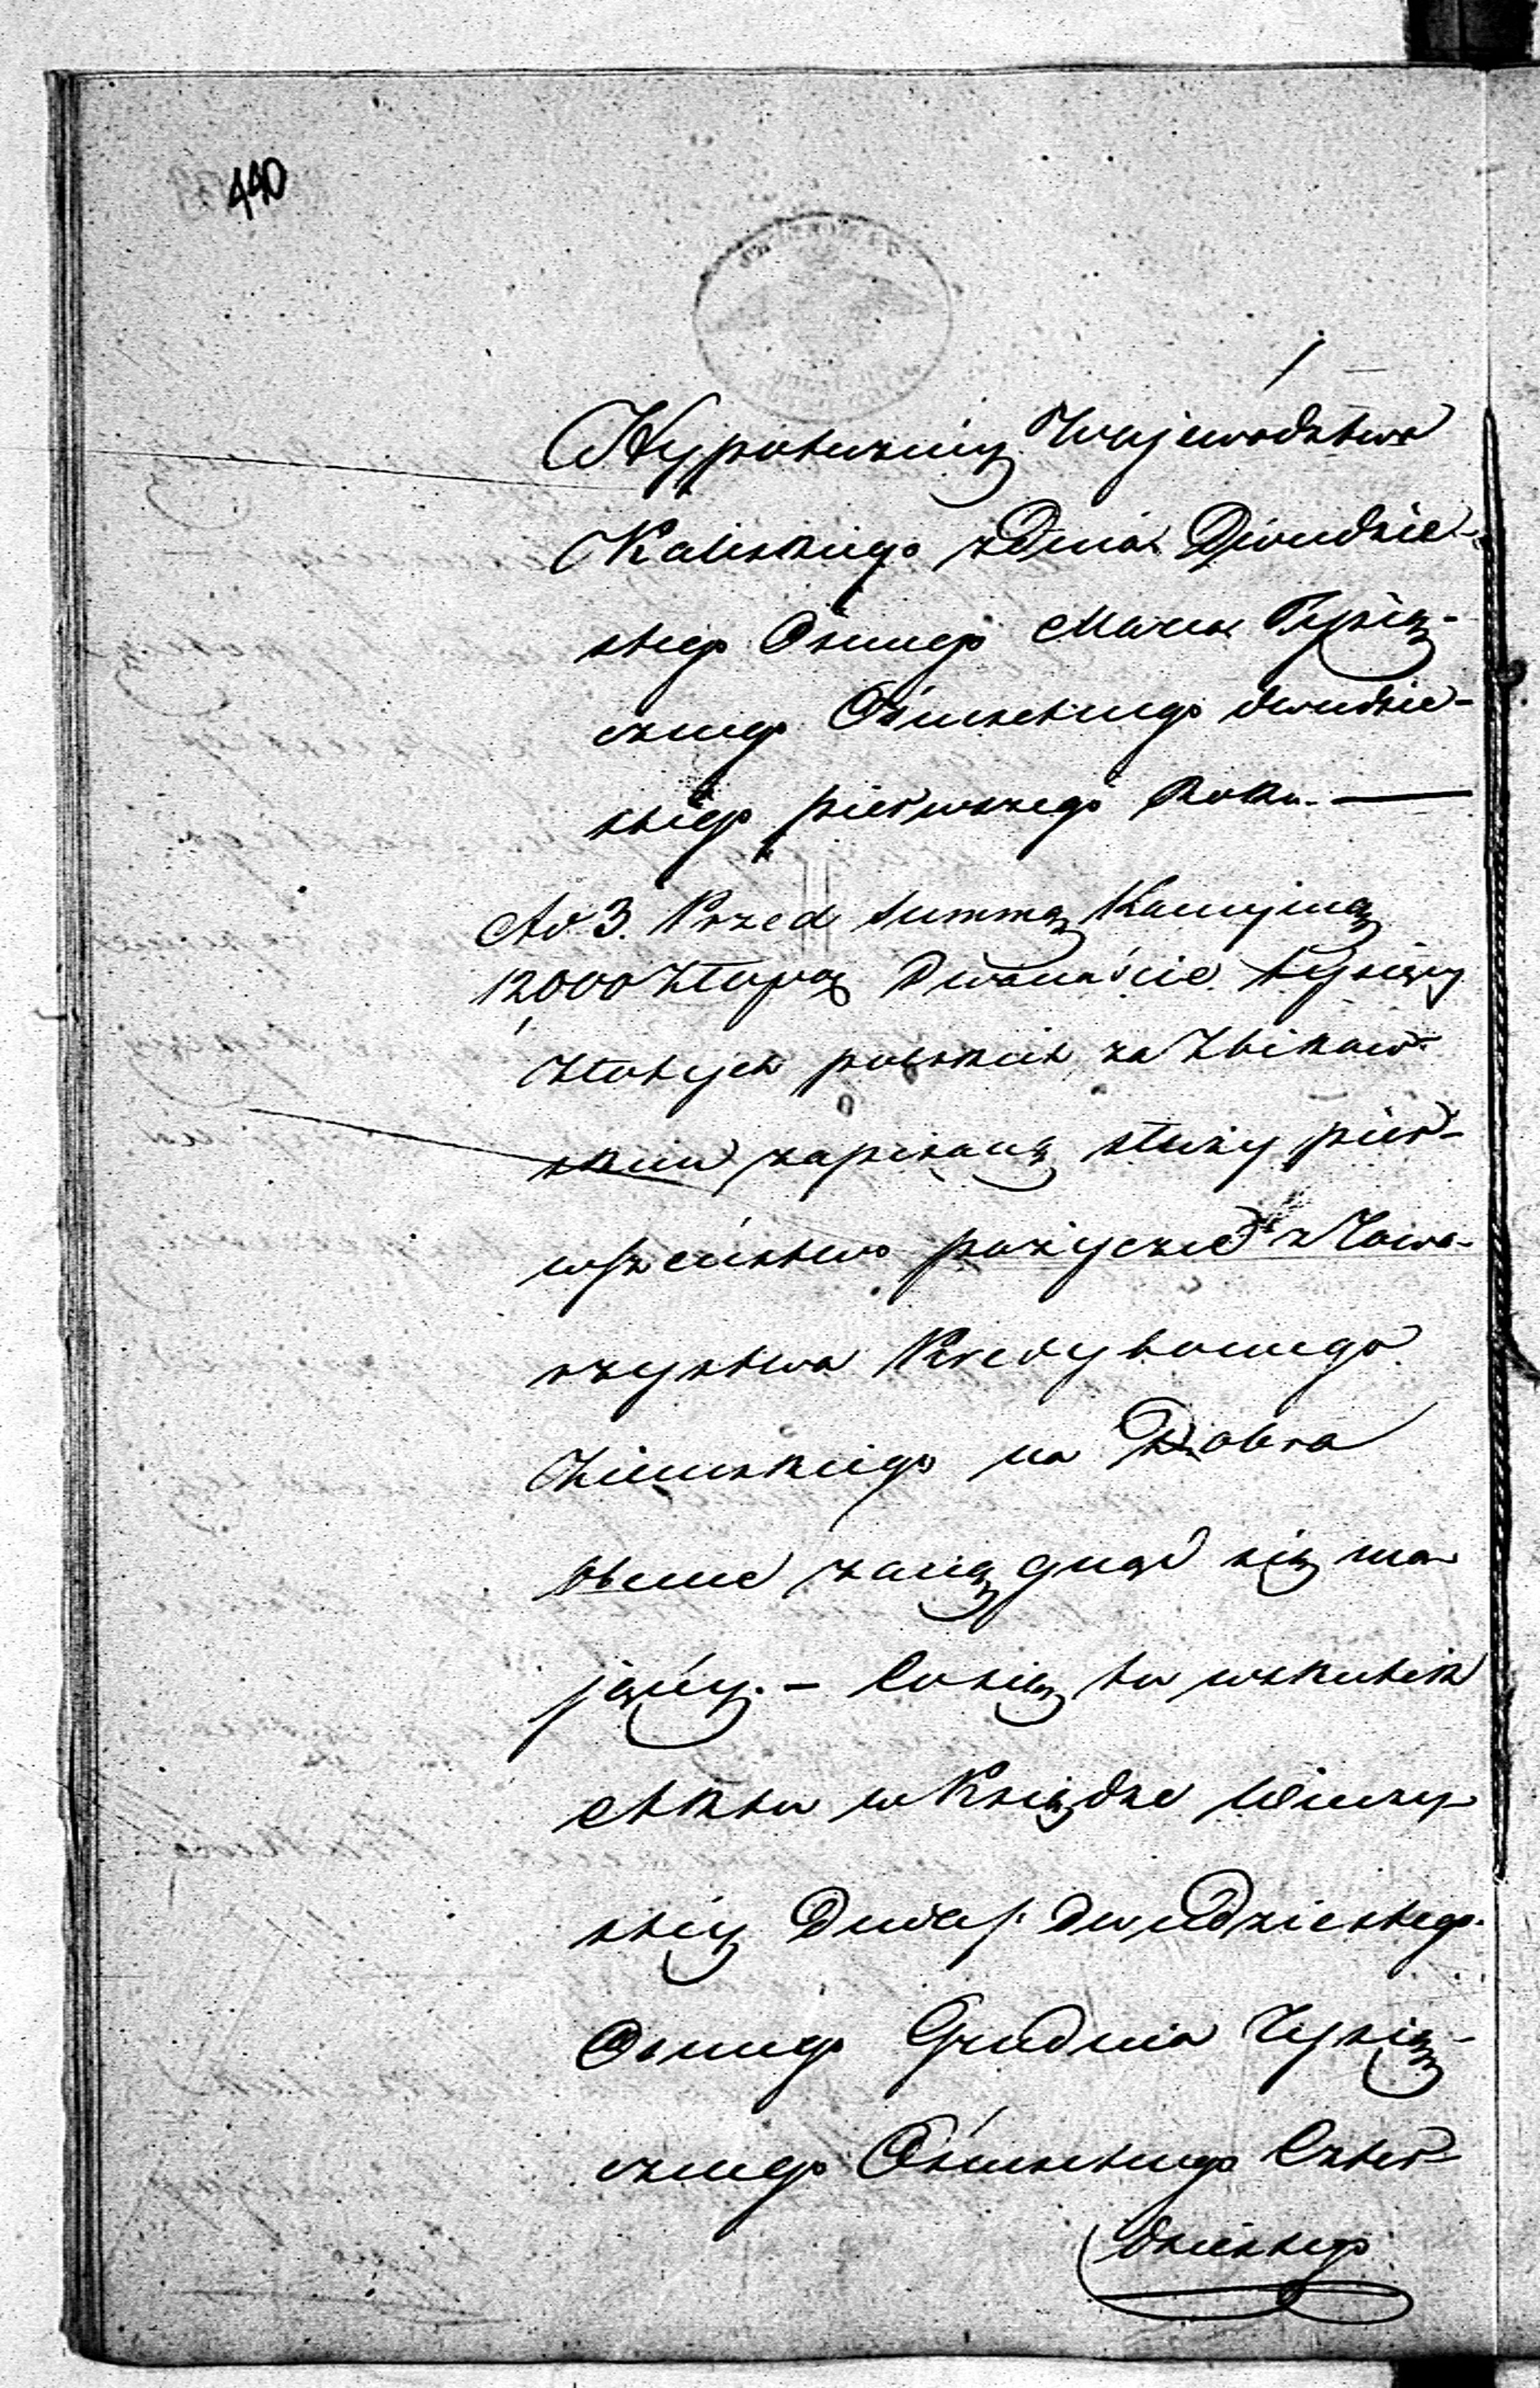 440
Hypoteczney Województwa
Kaliskiego z Dnia Dwudzie-
stego Osmego Marca Tysią-
cznego Ośmsetnego dwudzie-
stego pierwszego Roku. —
Ad 3. Przed summą Kaucyiną
12000 Złotpol Dwanaście tysięcy
złotych polskich za Zbikow-
skim zapisaną służy pier-
wszeństwo pożyczce z Towa-
rzystwa Kredytowego
Ziemskiego na Dobra
obecne zaciągnąć się ma
jącéy. – Co się to w skutek
Aktu w Księdze Wieczy-
stéy Dnia dwudziestego
Osmego Grudnia Tysią-
cznego Ośmsetnego Czter-
dziestego